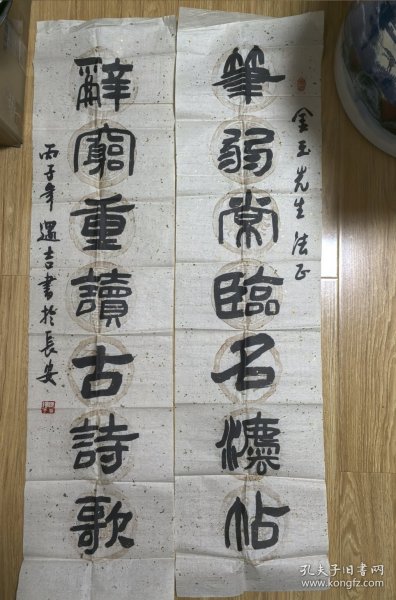 金玉先生法正
筆弱常臨名灋帖
辭窮重讀古詩歌
丙子年遇吉書於長安
孔夫子旧书网
www.kongfz.com